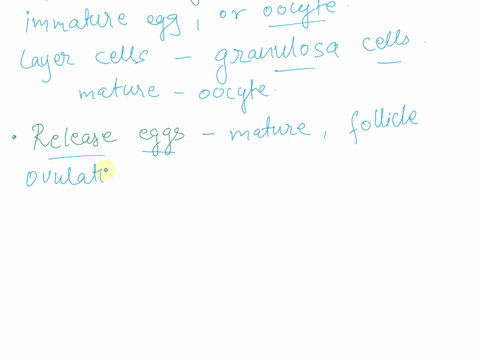 immature egg, or oocyte.
Layer cells - granulosa cells.
mature - oocyte.
• Release eggs - mature, follicle
ovulati